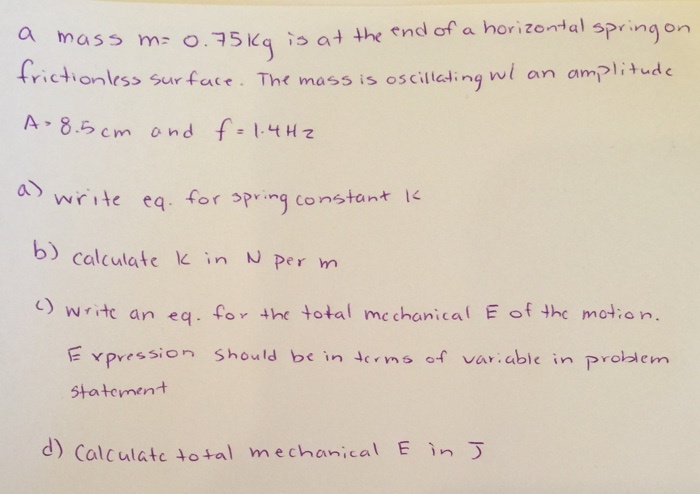 a mass m= 0.75kg is at the end of a horizontal spring on
frictionless surface. The mass is oscillating w/ an amplitude
A = 8.5cm and f = 1.4 Hz
a) write eq. for spring constant k
b) calculate k in N per m
c) write an eq. for the total mechanical E of the motion.
Expression should be in terms of variable in problem
statement
d) Calculate total mechanical E in J